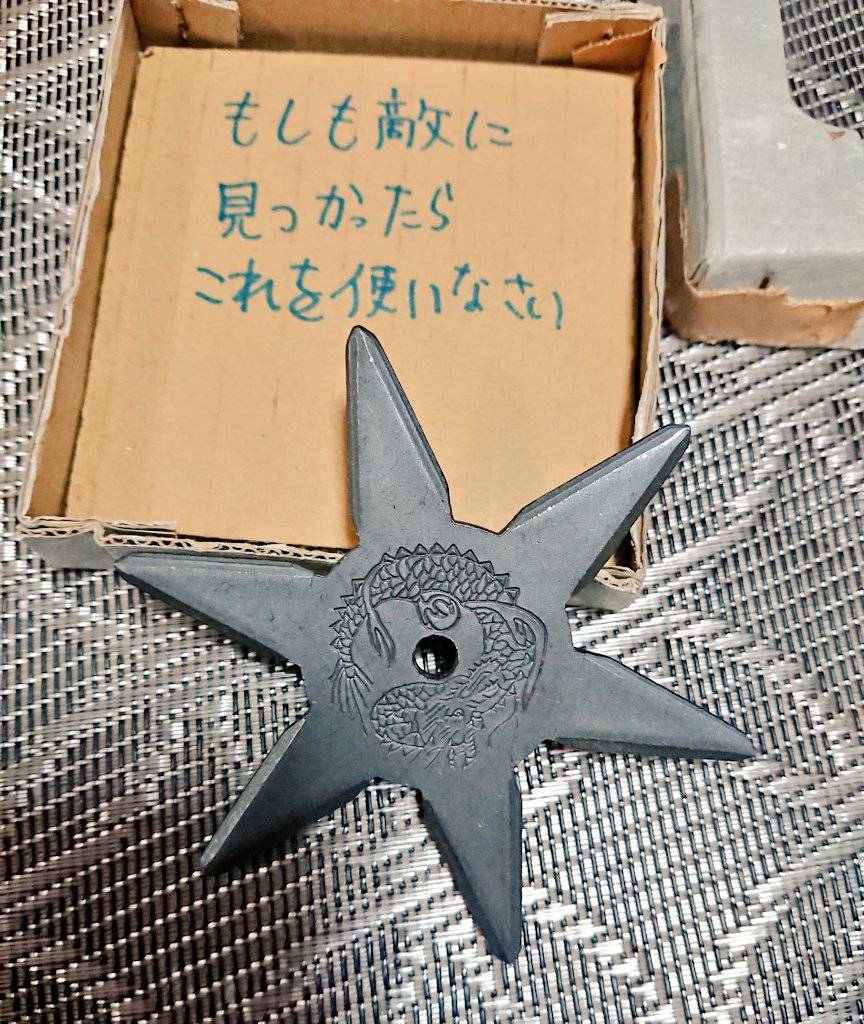 もしも敵に
見つかったら
これを使いなさい